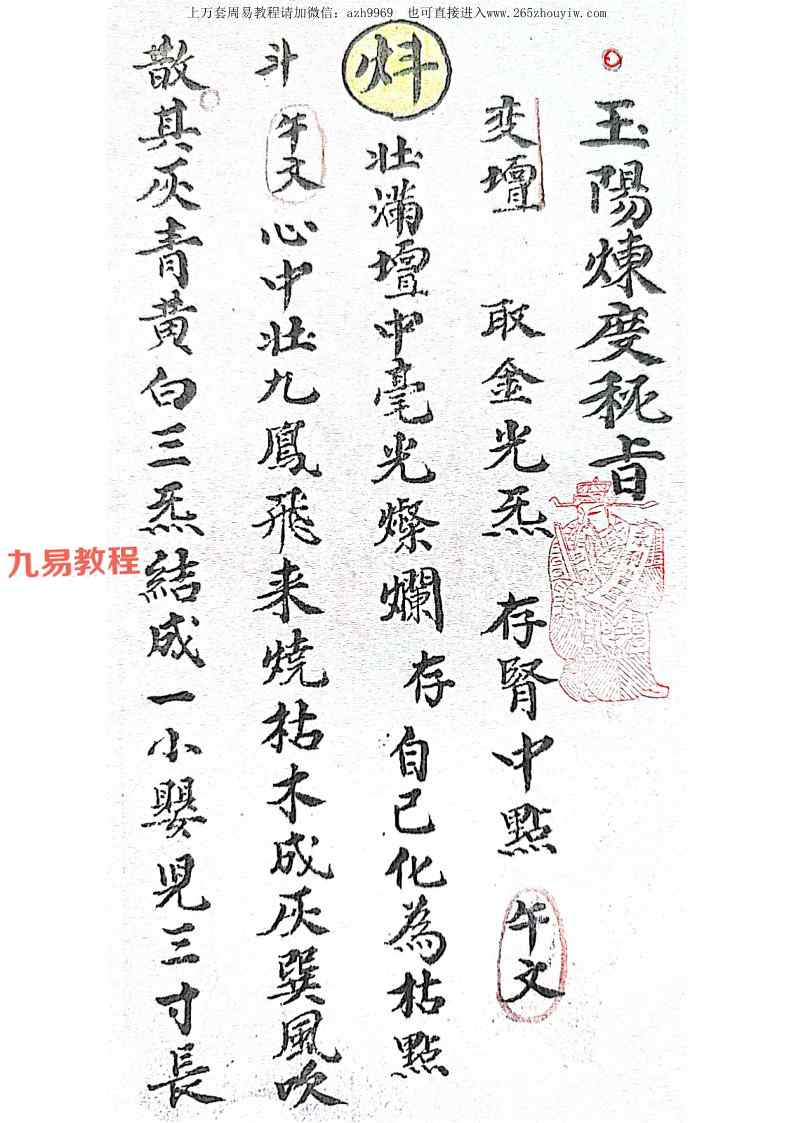 上万套周易教程请加微信：azh9969 也可直接进入www.265zhouyiw.com
玉陽煉度秘旨
变壇 取金光炁 存腎中點 午文
炓 壮滿壇中毫光燦爛 存自己化為枯點
斗 午文 心中壮九鳳飛来燒枯木成灰巽風吹
散其灰青黄白三炁結成一小嬰児三寸長
九易教程